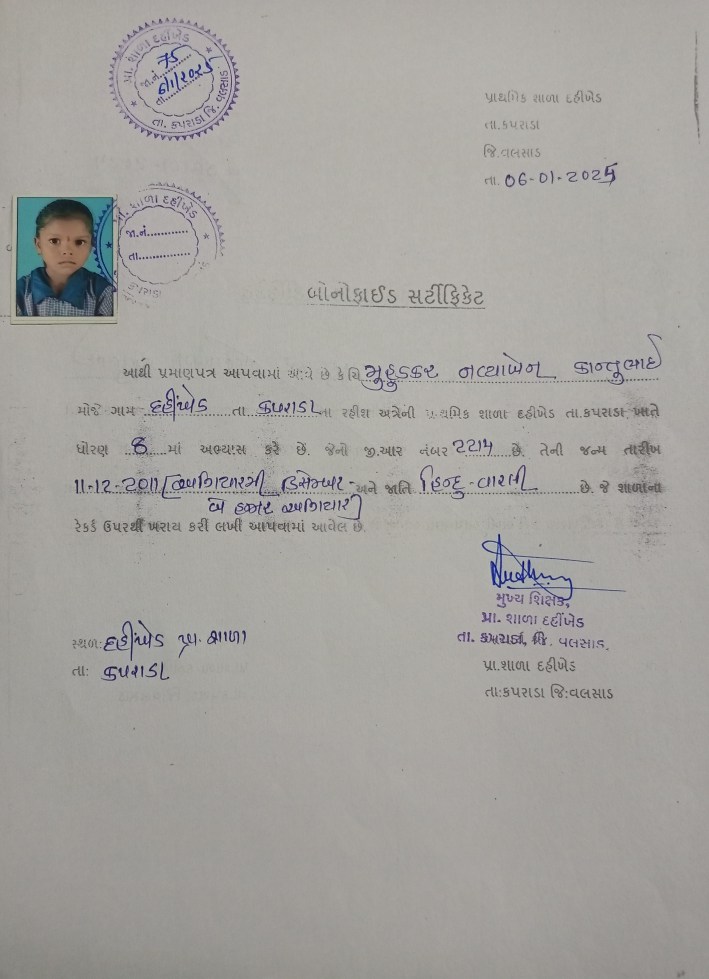 પ્રા. શાળા દહીંખેડ
જા.નં. 75
તા. 6/1/2025
તા. કપરાડા જિ. વલસાડ
પ્રાથમિક શાળા દહીંખેડ
તા.કપરાડા
જિ.વલસાડ
તા. 06-01-2025
તા. શાળા દહીંખેડ
જા.નં............
તા...............
કપરાડા
બોનોફાઈડ સર્ટીફિકેટ
આથી પ્રમાણપત્ર આપવામાં આવે છે કે ચિ મુહુડકર નવ્યાબેન કાન્તુભાઈ
મોજે ગામ દહીંખેડ તા કપરાડા ના રહીશ અત્રેની પ્રાથમિક શાળા દહીંખેડ તા.કપરાડા ખાતે
ધોરણ 8 માં અભ્યાસ કરે છે. જેનો જી.આર નંબર 2214 છે. તેની જન્મ તારીખ
11-12-2011 (અગિયારમી ડિસેમ્બર - અને જાતિ હિન્દુ-વારલી છે. જે શાળાના
બે હજાર અગિયાર)
રેકર્ડ ઉપરથી ખરાય કરી લખી આપવામાં આવેલ છે.
મુખ્ય શિક્ષક,
પ્રા. શાળા દહીંખેડ
તા. કપરાડા, જિ. વલસાડ.
સ્થળ: દહીંખેડ પ્રા. શાળા
પ્રા.શાળા દહીખેડ
તા: કપરાડા
તા:કપરાડા જિ:વલસાડ